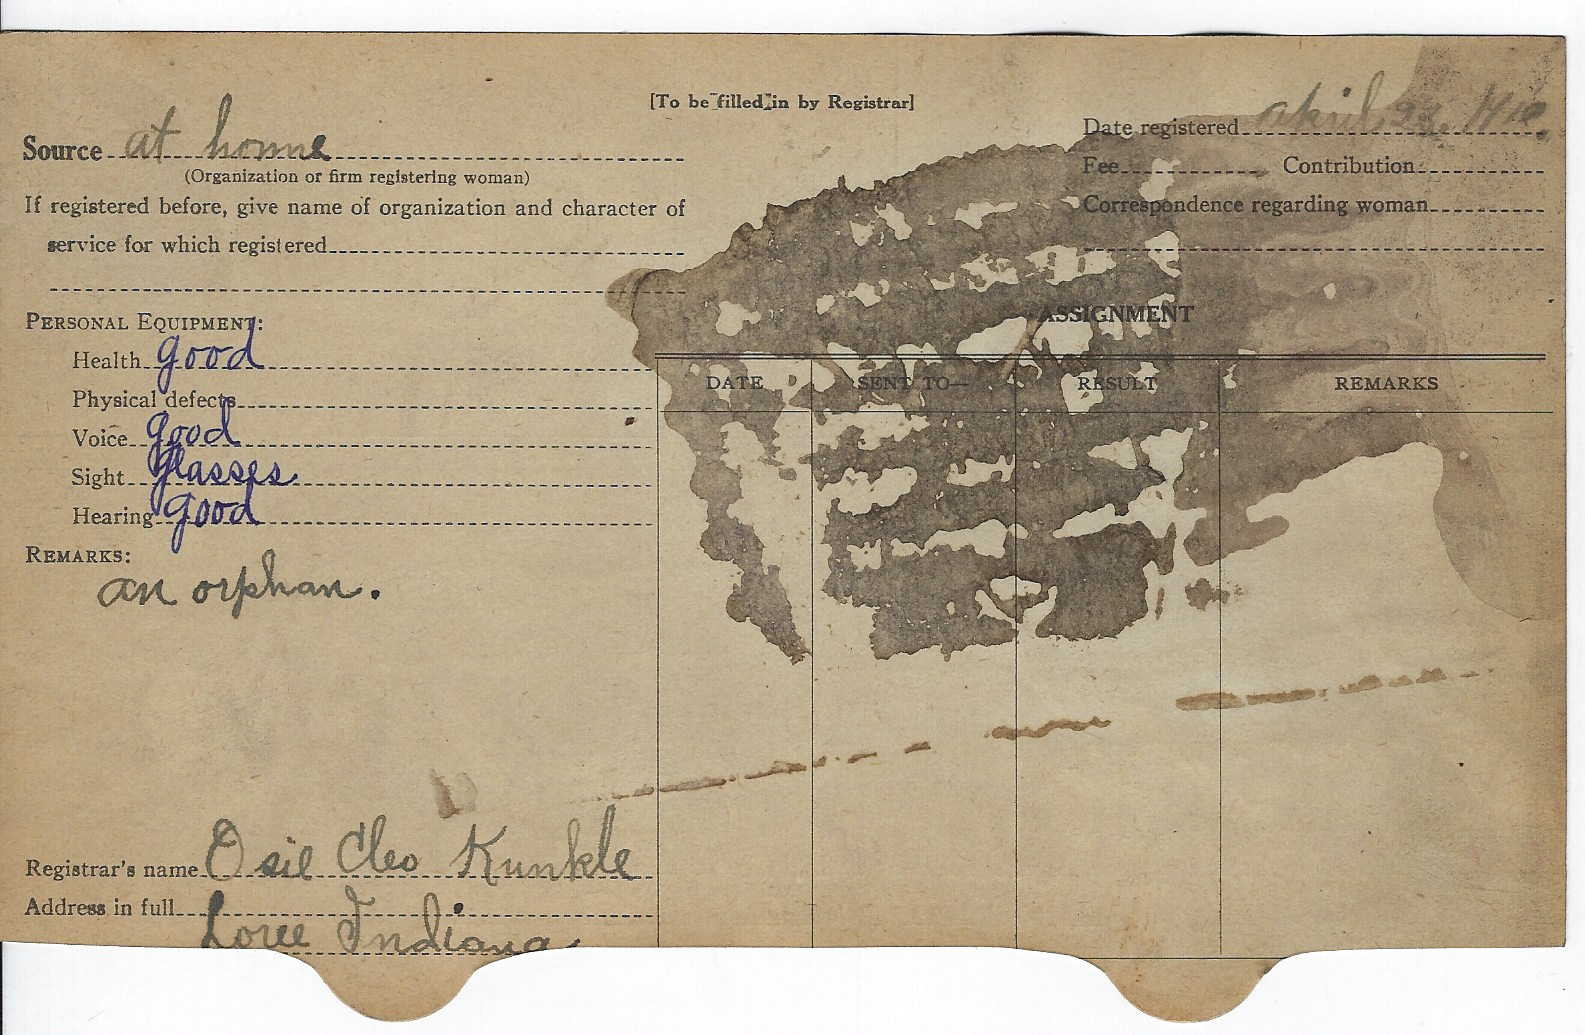 [To be filled in by Registrar]
Source at home
(Organization or firm registering woman)
If registered before, give name of organization and character of
service for which registered
Date registered april 23,
Fee Contribution
Correspondence regarding woman
PERSONAL EQUIPMENT:
Health good
Physical defects
Voice good
Sight glasses
Hearing good
REMARKS:
an orphan.
ASSIGNMENT
DATE SENT TO— RESULT REMARKS
Registrar's name Osie Cleo Kunkle
Address in full
Loree Indiana